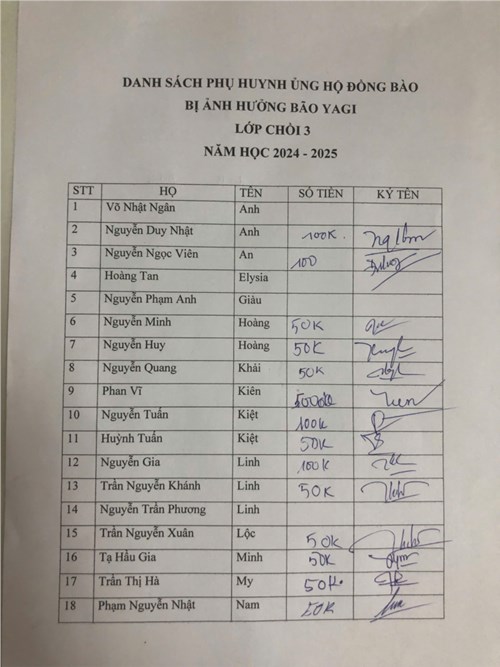 DANH SÁCH PHỤ HUYNH ỦNG HỘ ĐỒNG BÀO
BỊ ẢNH HƯỞNG BÃO YAGI
LỚP CHỒI 3
NĂM HỌC 2024 - 2025
STT HỌ TÊN SỐ TIỀN KÝ TÊN
1 Võ Nhật Ngân Anh
2 Nguyễn Duy Nhật Anh 100K
3 Nguyễn Ngọc Viên An 100
4 Hoàng Tan Elysia
5 Nguyễn Phạm Anh Giàu
6 Nguyễn Minh Hoàng 50K
7 Nguyễn Huy Hoàng 50K
8 Nguyễn Quang Khải 50K
9 Phan Vĩ Kiên
10 Nguyễn Tuấn Kiệt 100K
11 Huỳnh Tuấn Kiệt 50K
12 Nguyễn Gia Linh 100K
13 Trần Nguyễn Khánh Linh 50K
14 Nguyễn Trần Phương Linh
15 Trần Nguyễn Xuân Lộc 50K
16 Tạ Hầu Gia Minh 50K
17 Trần Thị Hà My 50K
18 Phạm Nguyễn Nhật Nam 50K